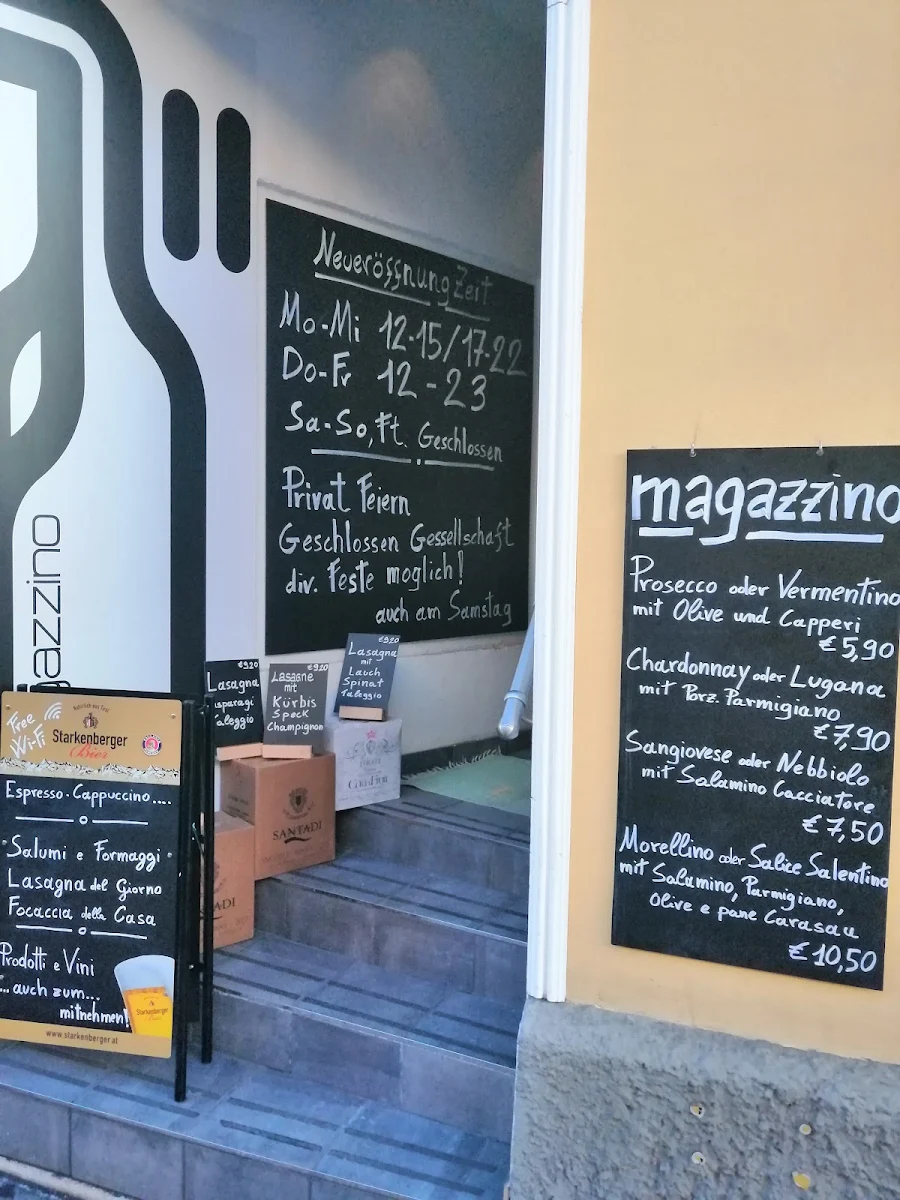 Neueröffnung Zeit
Mo-Mi 12-15/17-22
Do-Fr 12-23
Sa-So, Ft. Geschlossen
Privat Feiern
Geschlossen Gessellschaft
div. Feste moglich!
auch am Samstag
magazzino
Prosecco oder Vermentino
mit Olive und Capperi
€ 5,90
Chardonnay oder Lugana
mit Porz. Parmigiano
€ 7,90
Sangiovese oder Nebbiolo
mit Salamino Cacciatore
€ 7,50
Morellino oder Salice Salentino
mit Salamino, Parmigiano,
Olive e pane Carasau
€ 10,50
gazzino
€9,20
Lasagna
sparagi
Taleggio
€9,20
Lasagne
mit
Kürbis
Speck
Champignon
€9,20
Lasagna
mit
Lauch
Spinat
Taleggio
SANTADI
ADI
Free
Wi-Fi
Starkenberger
Bier
Espresso · Cappuccino....
Salumi e Formaggi
Lasagna del Giorno
Focaccia della Casa
Prodotti e Vini
... auch zum...
mitnehmen!
Starkenberger
www.starkenberger.at